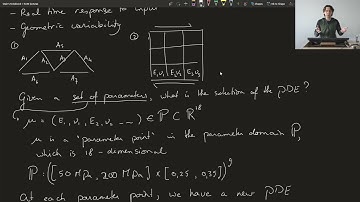 - Real time response to input
- Geometric variability
① ②
A₅
A₁ A₃ A₄
A₂
E₁,ν₁ E₂,ν₂ E₃,ν₃
Given a set of parameters, what is the solution of the PDE?
μ = (E₁, ν₁, E₂, ν₂, ...) ∈ ℙ ⊂ ℝ¹⁸
μ is a "parameter point" in the parameter domain ℙ,
which is 18-dimensional
ℙ: ([50 MPa, 200 MPa] × [0,25 , 0,35])⁹
At each parameter point, we have a new PDE